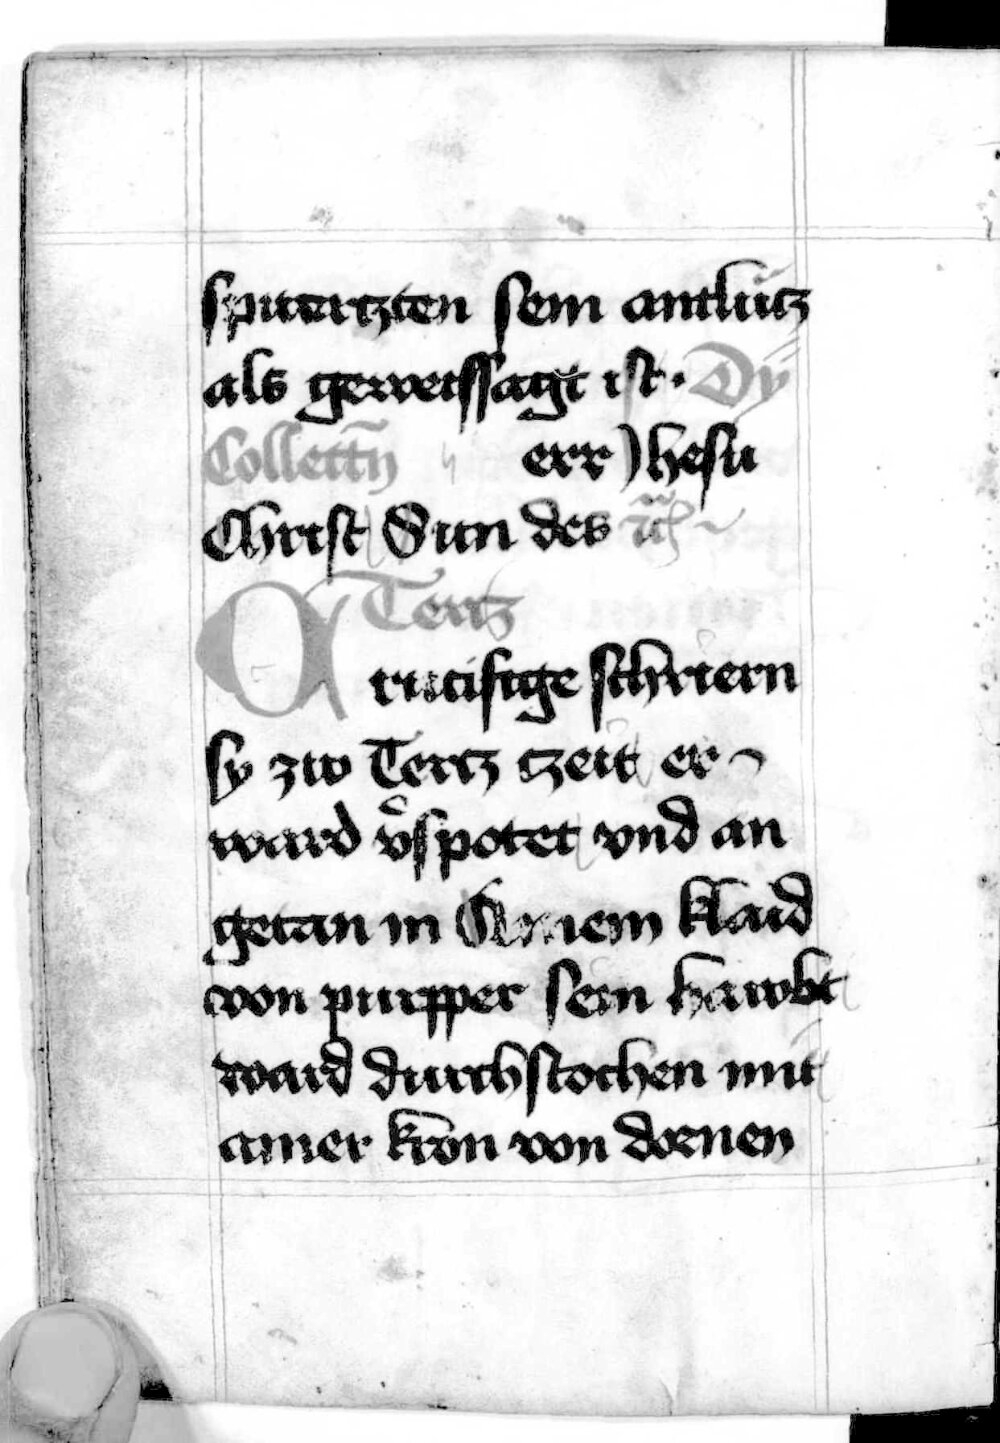 spuerczten sein antlücz
als geweissagt ist · Dÿ
Collettn̄ h err Jhesu
Christ Sun des
Tertz
rucifige schriern
sy zw Tertz czeit er
ward v̊spotet vnd an
getan in Seinem klaid
von purpper sein hawbt
ward durchstochen mit
ainer kron von doenen